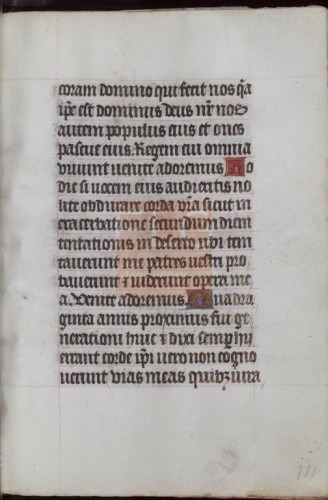 coram domino qui fecit nos q̄a
ip̄e est dominus deus nr̄ nos
autem populus eius et oues
pascue eius. Regem cui omnia
viuunt uenite adoremus Ho
die si uocem eius audieritis no
lite obdurare corda vr̄a sicut in
exacerbatione secundum diem
temtationis in deserto ubi tem
tauerunt me patres uestri pro
bauerunt ⁊ uiderunt opera me
a. Venite adoremus. Quadra
ginta annis proximus fui ge
nerationi huic ⁊ dixi semp̄ hij
errant corde ip̄i uero non cogno
uerunt vias meas quibꝫ iura
111